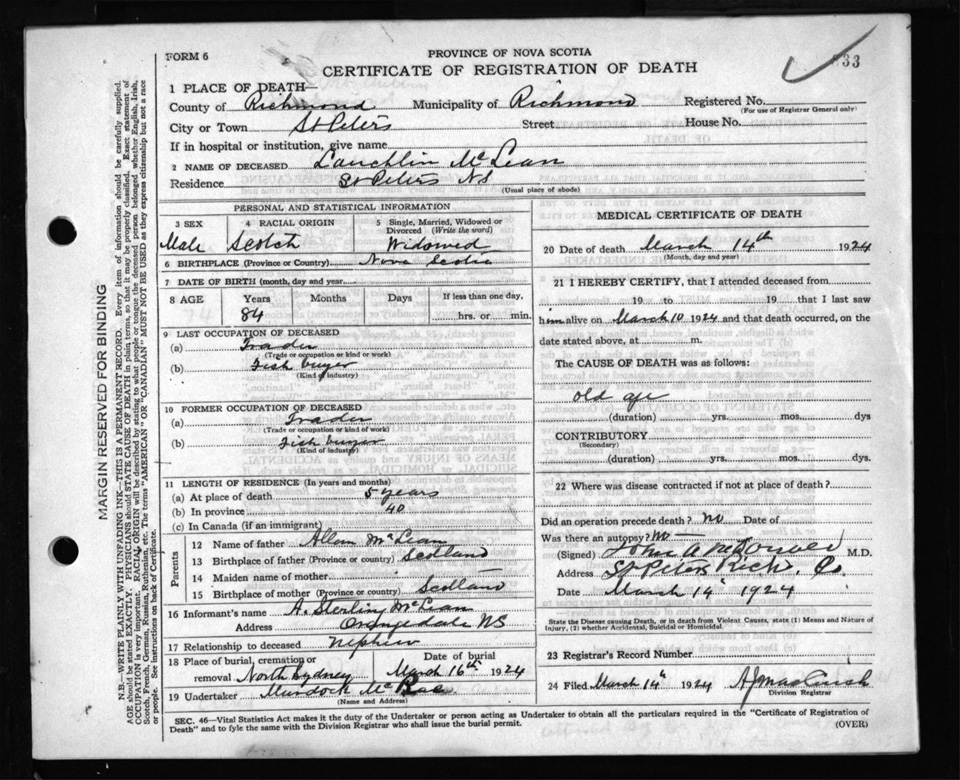 FORM 6
PROVINCE OF NOVA SCOTIA
CERTIFICATE OF REGISTRATION OF DEATH
33
1 PLACE OF DEATH—
County of Richmond Municipality of Richmond Registered No.
(For use of Registrar General only)
City or Town St Peters Street House No.
If in hospital or institution, give name
2 NAME OF DECEASED Lauchlin McLean
Residence St Peters NS
(Usual place of abode)
PERSONAL AND STATISTICAL INFORMATION
3 SEX 4 RACIAL ORIGIN 5 Single, Married, Widowed or Divorced (Write the word)
Male Scotch Widowed
6 BIRTHPLACE (Province or Country) Nova Scotia
7 DATE OF BIRTH (month, day and year)
8 AGE Years Months Days If less than one day,
84 hrs. or min.
9 LAST OCCUPATION OF DECEASED
(a) Trader
(Trade or occupation or kind of work)
(b) Fish buyer
(Kind of industry)
10 FORMER OCCUPATION OF DECEASED
(a) Trader
(Trade or occupation or kind of work)
(b) Fish buyer
(Kind of industry)
11 LENGTH OF RESIDENCE (In years and months)
(a) At place of death 5 years
(b) In province 40
(c) In Canada (if an immigrant)
Parents
12 Name of father Allan McLean
13 Birthplace of father (Province or country) Scotland
14 Maiden name of mother
15 Birthplace of mother (Province or country) Scotland
16 Informant's name A. Sterling McLean
Address Orangedale NS
17 Relationship to deceased nephew
18 Place of burial, cremation or removal North Sydney Date of burial March 16th 1924
19 Undertaker Murdock McRae
(Name and Address)
MEDICAL CERTIFICATE OF DEATH
20 Date of death March 14th 1924
(Month, day and year)
21 I HEREBY CERTIFY, that I attended deceased from
19 to 19 that I last saw
him alive on March 10 1924 and that death occurred, on
date stated above, at m.
The CAUSE OF DEATH was as follows:
old age
(duration) yrs. mos. dys
CONTRIBUTORY
(Secondary)
(duration) yrs. mos. dys.
22 Where was disease contracted if not at place of death?
Did an operation precede death? no Date of
Was there an autopsy? no
(Signed) John A M.D.
Address St Peters Rich. Co.
Date March 14 1924
State the Disease causing Death, or in death from Violent Causes, state (1) Means and Nature of
Injury, (2) whether Accidental, Suicidal or Homicidal.
23 Registrar's Record Number
24 Filed March 14th 1924
Division Registrar
SEC. 46—Vital Statistics Act makes it the duty of the Undertaker or person acting as Undertaker to obtain all the particulars required in the "Certificate of Registration of
Death" and to fyle the same with the Division Registrar who shall issue the burial permit.
(OVER)
MARGIN RESERVED FOR BINDING
N.B.—WRITE PLAINLY WITH UNFADING INK—THIS IS A PERMANENT RECORD. Every item of information should be carefully supplied.
AGE should be stated EXACTLY. PHYSICIANS should STATE CAUSE OF DEATH in plain terms, so that it may be properly classified. Exact statement of
OCCUPATION is very important. RACIAL ORIGIN will be described by stating to what people or tongue the deceased person belonged whether English, Irish,
Scotch, French, German, Russian, Ruthenian, etc. The terms "AMERICAN" OR "CANADIAN" MUST NOT BE USED as they express citizenship but not a race
or people. See instructions on back of Certificate.